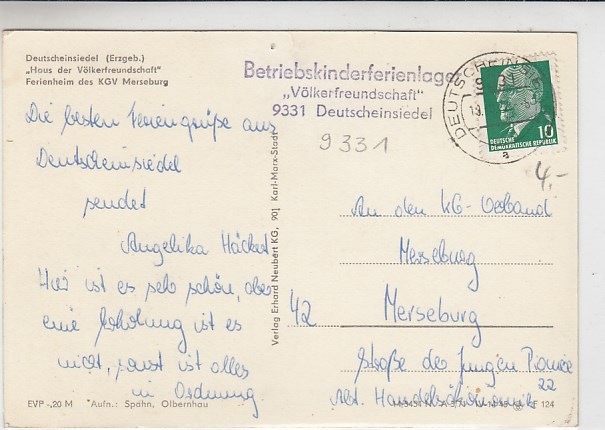 Deutscheinsiedel (Erzgeb.)
„Haus der Völkerfreundschaft"
Ferienheim des KGV Merseburg
Betriebskinderferienlager
„Völkerfreundschaft"
9331 Deutscheinsiedel
DEUTSCHEINS
19.
a
10
DEUTSCHE
DEMOKRATISCHE REPUBLIK
9331
4,-
Die besten Feriengrüße aus
Deutscheinsiedel
sendet
Angelika Häckert
Hier ist es sehr schön, aber
eine Erholung ist es
nicht, sonst ist alles
in Ordnung
Verlag Erhard Neubert KG, 901 Karl-Marx-Stadt
An den KG-Verband
Merseburg
42 Merseburg
Straße der Jungen Pioniere
22
Abt. Handelsökonomie
EVP -,20 M Aufn.: Spahn, Olbernhau
F 124